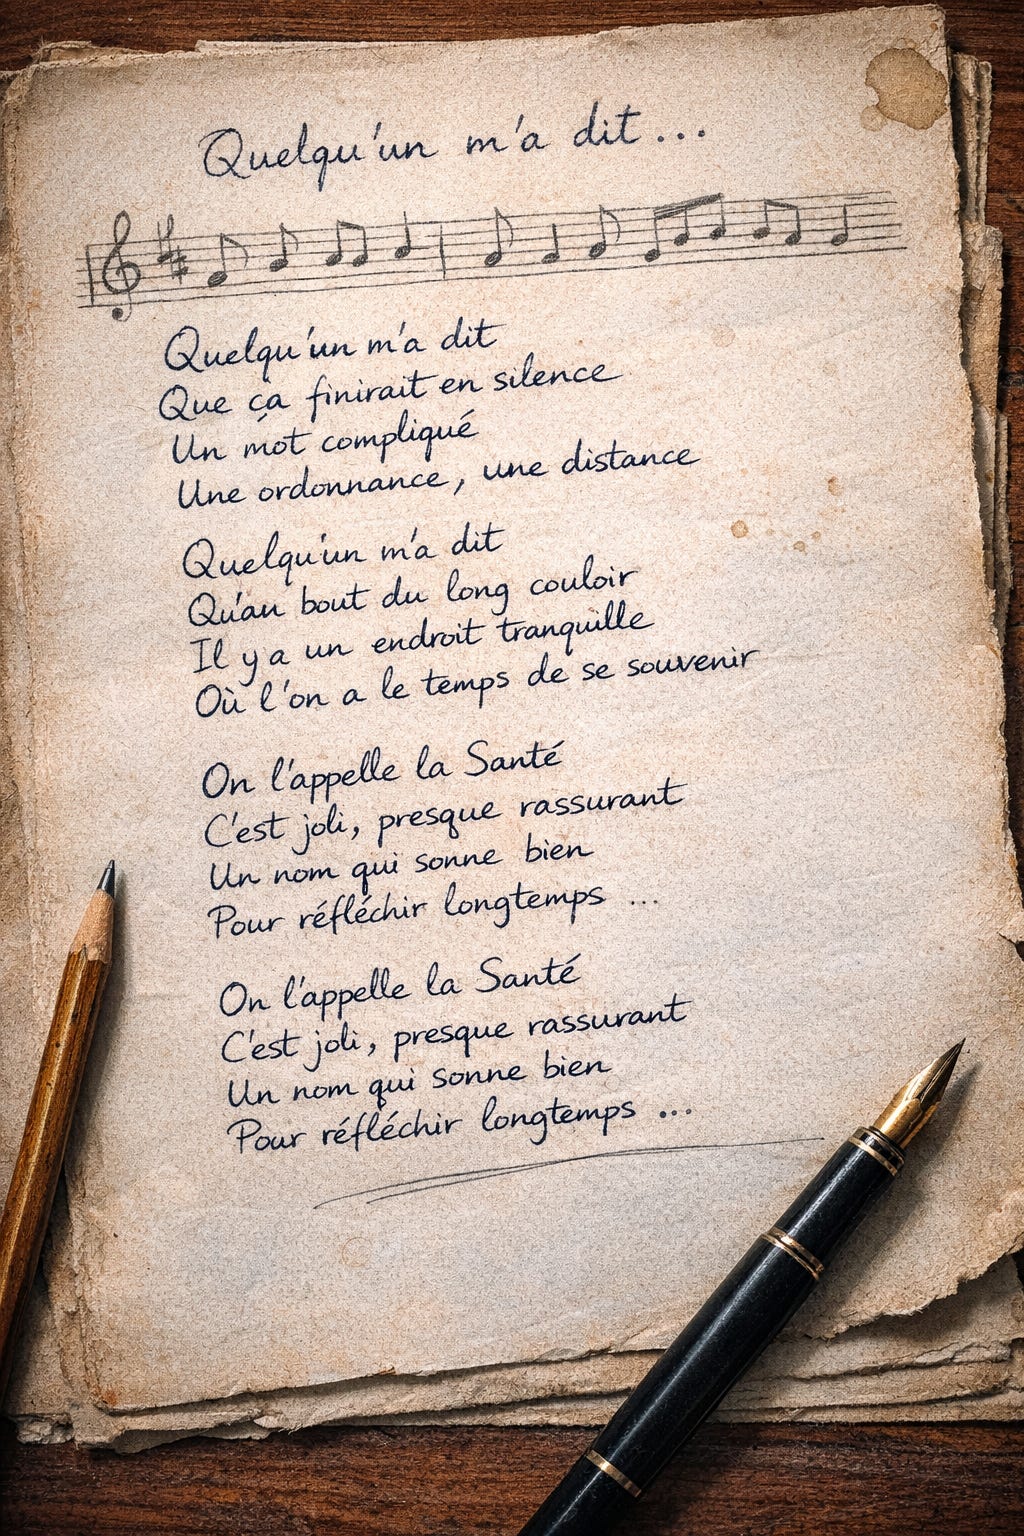 Quelqu'un m'a dit...
Quelqu'un m'a dit
Que ça finirait en silence
Un mot compliqué
Une ordonnance, une distance
Quelqu'un m'a dit
Qu'au bout du long couloir
Il y a un endroit tranquille
Où l'on a le temps de se souvenir
On l'appelle la Santé
C'est joli, presque rassurant
Un nom qui sonne bien
Pour réfléchir longtemps ...
On l'appelle la Santé
C'est joli, presque rassurant
Un nom qui sonne bien
Pour réfléchir longtemps ...